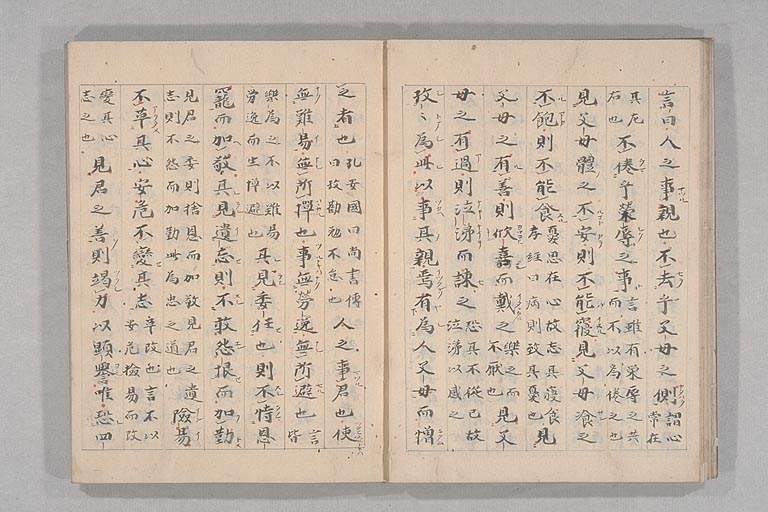 言曰人之事親也不去乎父母之側謂心常在
其左右也不倦乎榮辱之事言雖有榮辱之共而不以為倦之也
見父母體之不安則不能寢見父母飡之
不飽則不能食憂思在心故忘其寢食孝経曰病則致其憂也見
父母之有善則欣喜而戴之樂之而不厭也見父
母之有過則泣涕而諫之恐其不従己故泣涕以感之
孜〻為此以事其親焉有為人父母而憎
之者也孔安國曰尚書傳曰孜勸勉不怠也人之事君也使
無難易無所憚也事無勞逸無所避也言皆
樂為之不以難易勞逸而生憎避也其見委任也則不恃恩
寵而加敬其見遺忘則不敢怨恨而加勤
見君之委則捨恩而加敬見君之遺志則不怨而加勤此為忠之道也險易
不革其心安危不變其志革改也言不以安危險易而改
變其心志之也見君之善則竭力以顯譽唯恐四